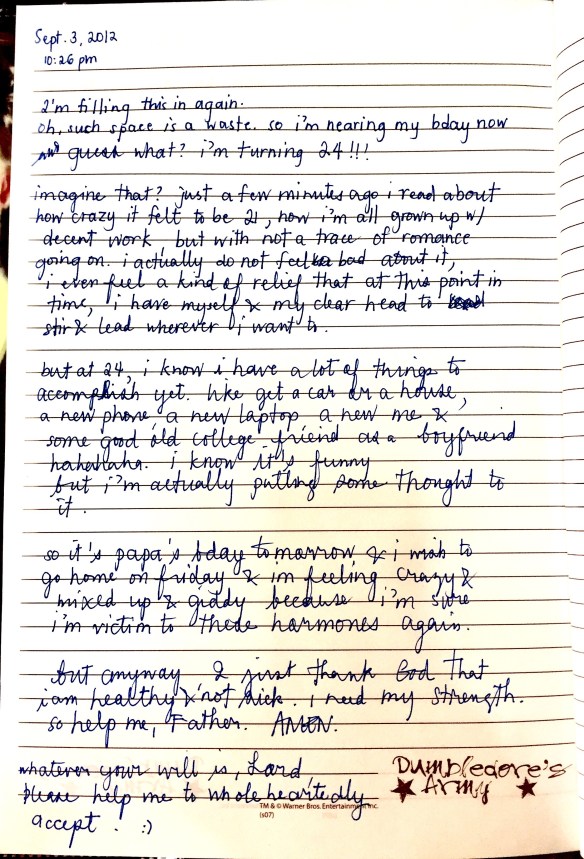 Sept. 3, 2012
10:26 pm
I'm filling this in again.
Oh, such space is a waste. so i'm nearing my bday now
and guess what? i'm turning 24!!!
imagine that? just a few minutes ago i read about
how crazy it felt to be 21, now i'm all grown up w/
decent work, but with not a trace of romance
going on. i actually do not feel bad about it,
i even feel a kind of relief that at this point in
time, i have myself & my clear head to
stir & lead wherever i want to.
but at 24, i know i have a lot of things to
accomplish yet. like get a car or a house,
a new phone, a new laptop a new me &
some good old college friend as a boyfriend
hahahaha. i know it's funny
but i'm actually putting some thought to
it.
so it's papa's bday tomorrow & i wish to
go home on friday & im feeling crazy &
mixed up & giddy because i'm sure
i'm victim to these harmones again.
but anyway I just thank God that
i am healthy & not sick. i need my strength.
so help me, Father. AMEN.
whatever your will is, Lord
please help me to whole heartedly
accept. :)
Dumbledore's
Army
TM & © Warner Bros. Entertainment Inc.
(s07)